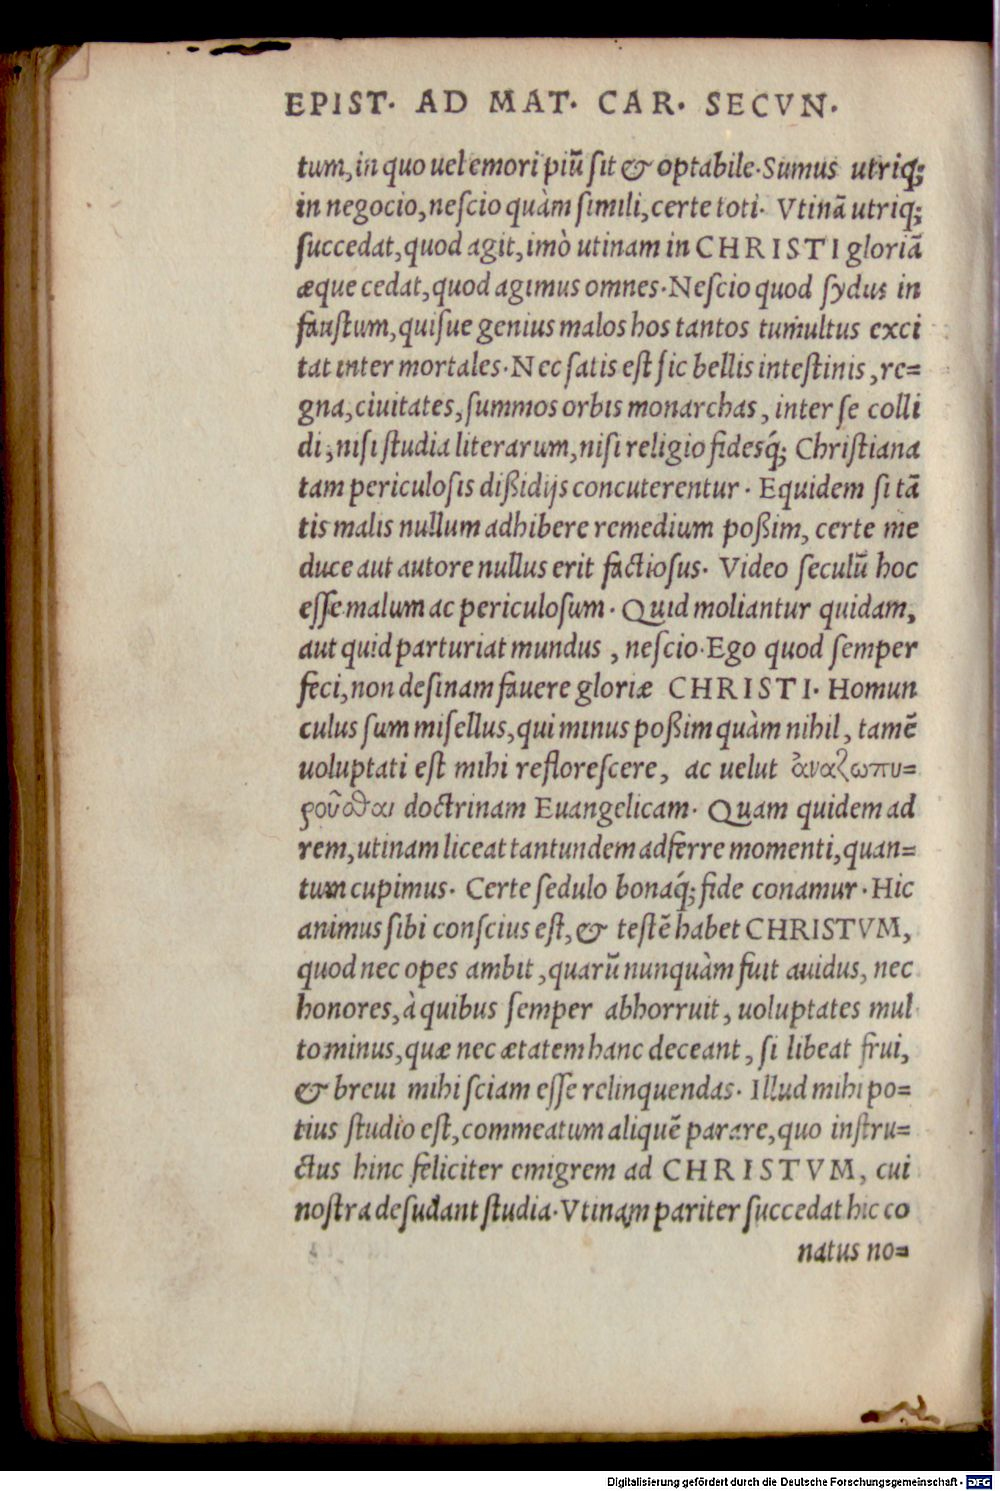 EPIST. AD MAT. CAR. SECVN.
tum, in quo uel emori piũ ſit & optabile. Sumus utriq;
in negocio, neſcio quàm ſimili, certe toti. Vtinã utriq;
ſuccedat, quod agit, imò utinam in CHRISTI gloriã
æque cedat, quod agimus omnes. Neſcio quod ſydus in
fauſtum, quiſue genius malos hos tantos tumultus exci
tat inter mortales. Nec ſatis eſt ſic bellis inteſtinis, re=
gna, ciuitates, ſummos orbis monarchas, inter ſe colli
di, niſi ſtudia literarum, niſi religio fidesq́; Chriſtiana
tam periculoſis dißidijs concuterentur. Equidem ſi tã
tis malis nullum adhibere remedium poßim, certe me
duce aut autore nullus erit factioſus. Video ſeculũ hoc
eſſe malum ac periculoſum. Quid moliantur quidam,
aut quid parturiat mundus, neſcio. Ego quod ſemper
feci, non deſinam fauere gloriæ CHRISTI. Homun
culus ſum miſellus, qui minus poßim quàm nihil, tamẽ
uoluptati eſt mihi refloreſcere, ac uelut ἀναζωπυ=
ροῦσθαι doctrinam Euangelicam. Quam quidem ad
rem, utinam liceat tantundem adferre momenti, quan=
tum cupimus. Certe ſedulo bonaq́; fide conamur. Hic
animus ſibi conſcius eſt, & teſtẽ habet CHRISTVM,
quod nec opes ambit, quarũ nunquàm fuit auidus, nec
honores, à quibus ſemper abhorruit, uoluptates mul
to minus, quæ nec ætatem hanc deceant, ſi libeat frui,
& breui mihi ſciam eſſe relinquendas. Illud mihi po=
tius ſtudio eſt, commeatum aliquẽ parare, quo inſtru=
ctus hinc feliciter emigrem ad CHRISTVM, cui
noſtra deſudant ſtudia. Vtinam pariter ſuccedat hic co
natus no=
Digitalisierung gefördert durch die Deutsche Forschungsgemeinschaft - DFG